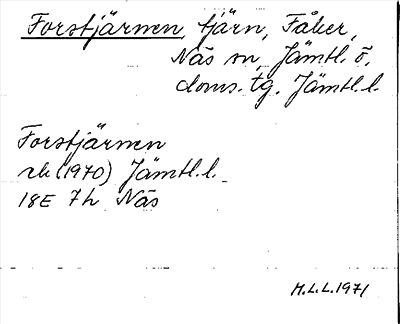 Forstjärnen, tjärn, Fåker,
Näs sn, Jämtl. ö.
doms. tg. Jämtl. l.
Forstjärnen
rk (1970) Jämtl. l.
18E 7h Näs
M.L.L. 1971